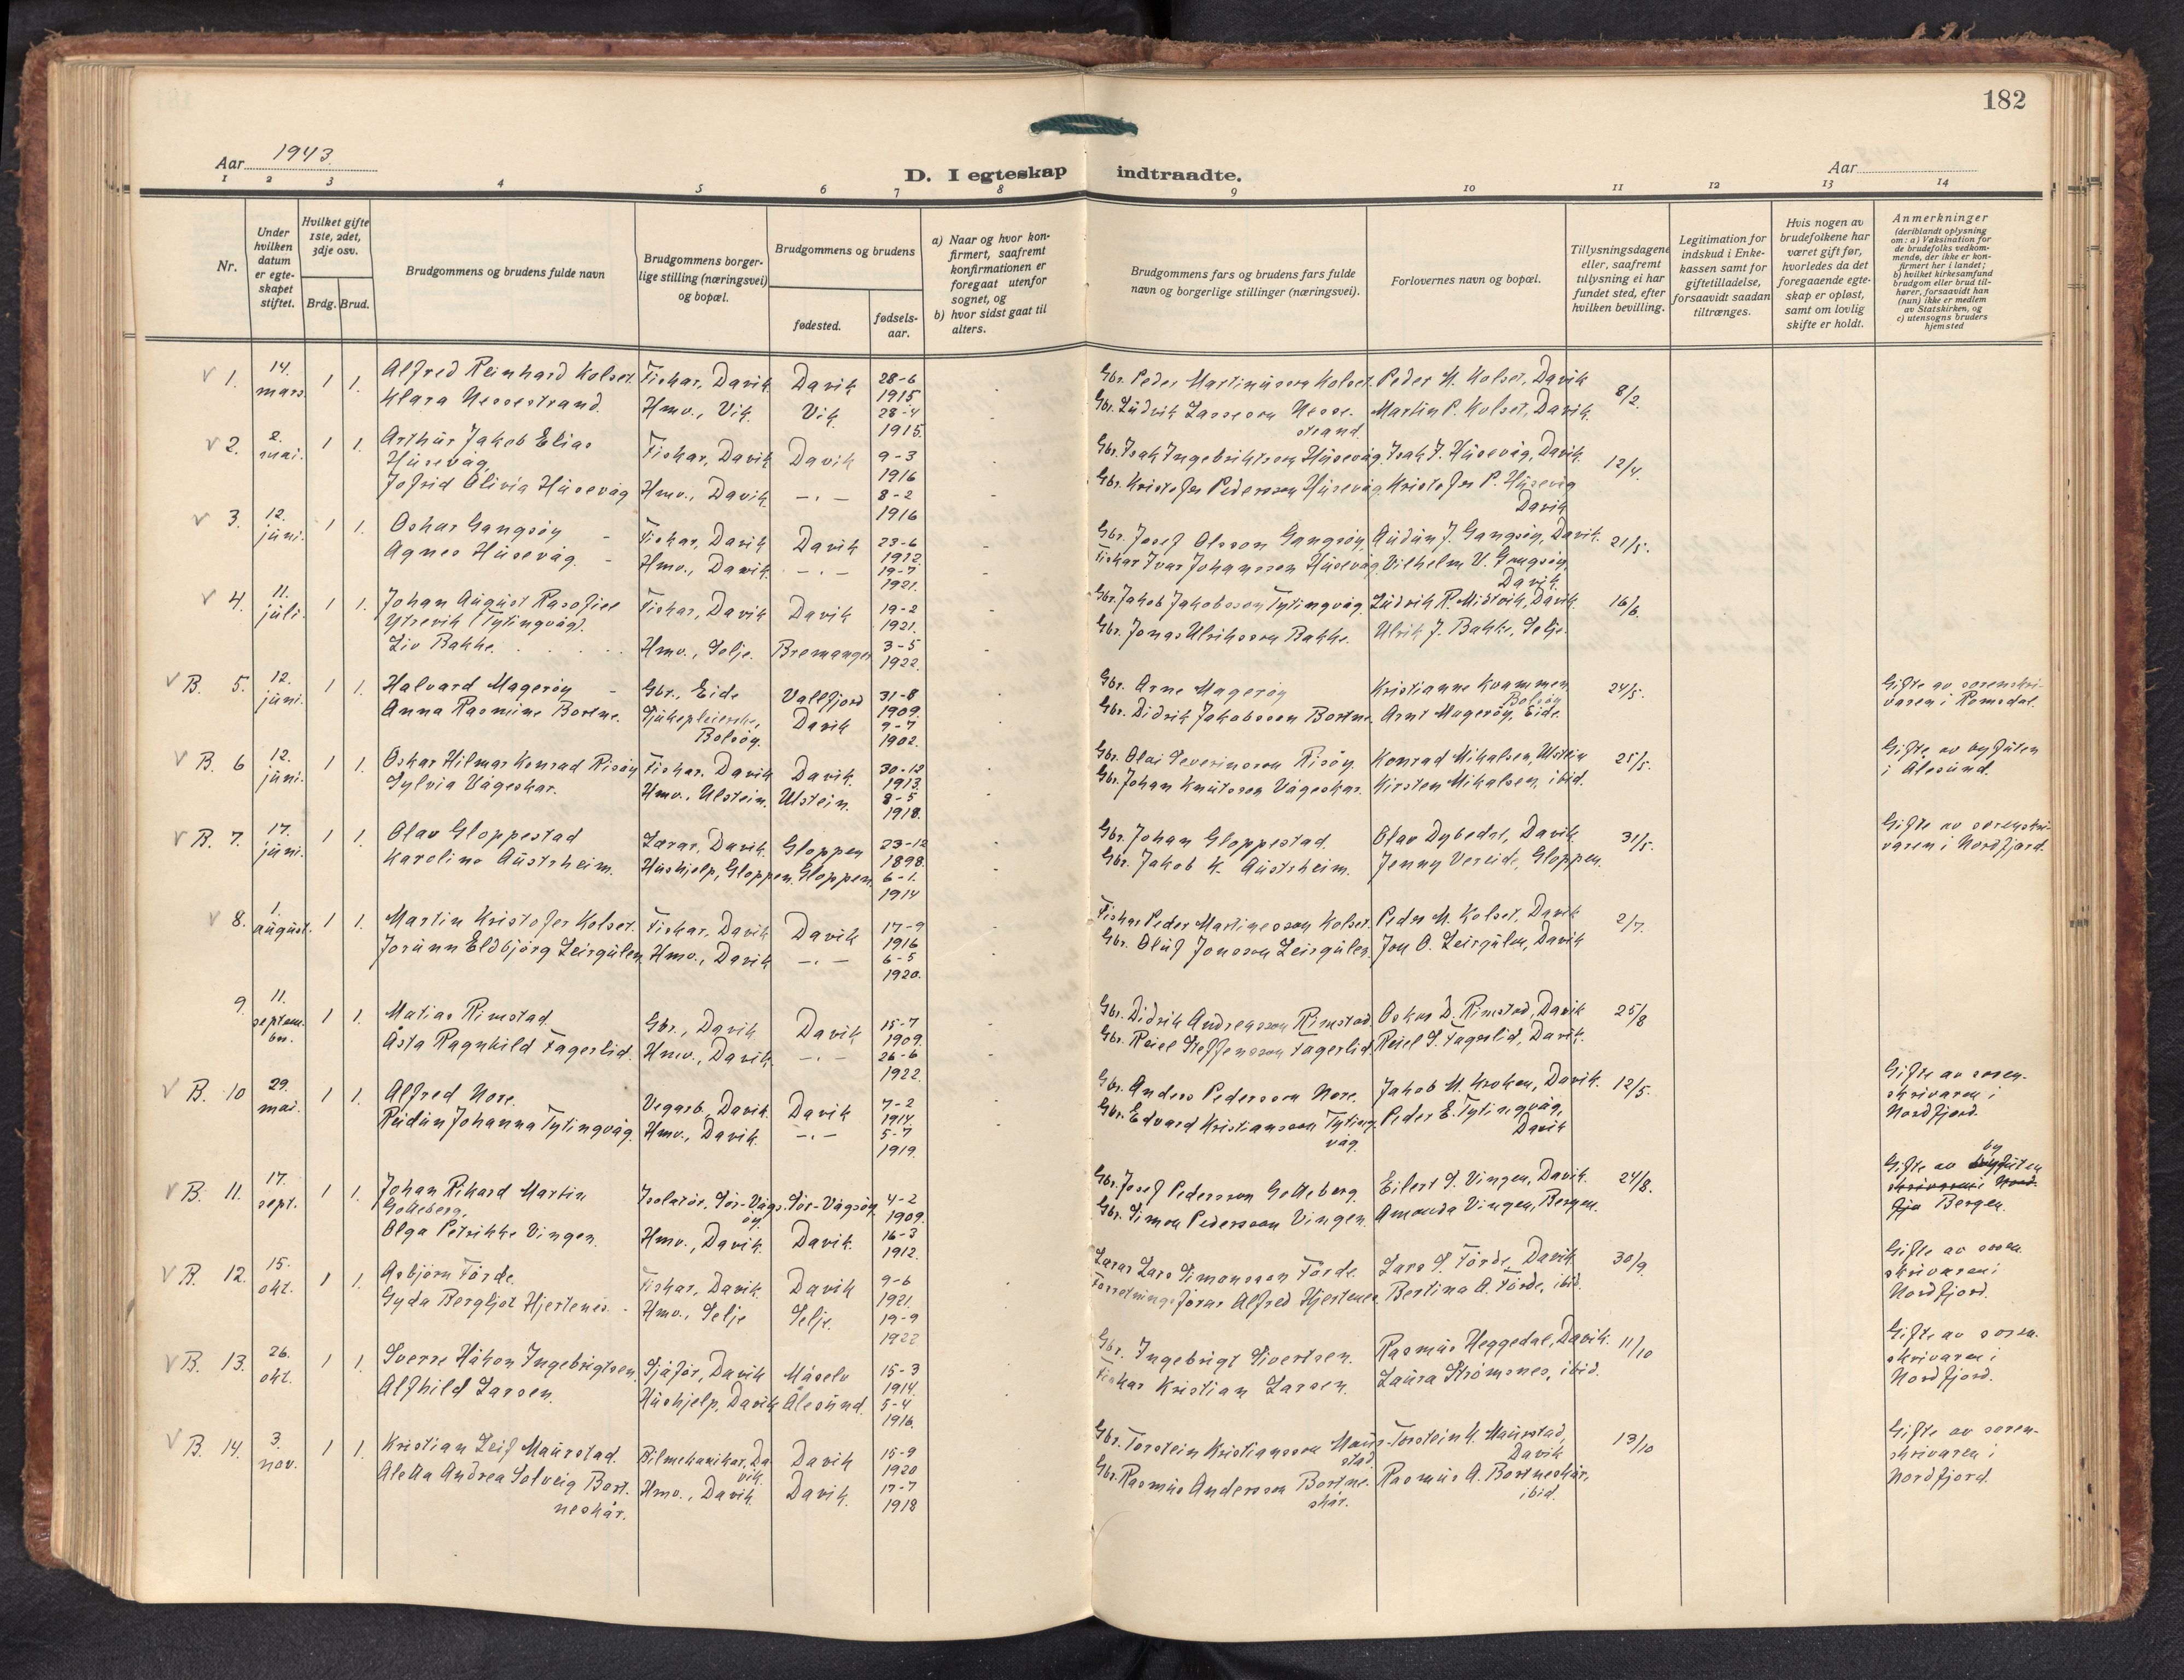 182
Aar 1943
D. I egteskap indtraadte.
Aar
1 2 3 4 5 6 7 8 9 10 11 12 13 14
Nr.
Under hvilken datum er egteskapet stiftet.
Hvilket gifte 1ste, 2det, 3dje osv.
Brdg. Brud.
Brudgommens og brudens fulde navn
Brudgommens borgerlige stilling (næringsvei) og bopæl.
Brudgommens og brudens
fødested.
fødselsaar.
a) Naar og hvor konfirmert, saafremt konfirmationen er foregaat utenfor sognet, og
b) hvor sidst gaat til alters.
Brudgommens fars og brudens fars fulde navn og borgerlige stillinger (næringsvei).
Forlovernes navn og bopæl.
Tillysningsdagene eller, saafremt tillysning ei har fundet sted, efter hvilken bevilling.
Legitimation for indskud i Enkekassen samt for giftetilladelse, forsaavidt saadan tiltrænges.
Hvis nogen av brudefolkene har været gift før, hvorledes da det foregaaende egteskap er opløst, samt om lovlig skifte er holdt.
Anmerkninger
(deriblandt oplysning om: a) Vaksination for de brudefolks vedkommende, der ikke er konfirmert her i landet;
b) hvilket kirkesamfund brudgom eller brud tilhører, forsaavidt han (hun) ikke er medlem av Statskirken, og
c) utensogns bruders hjemsted
V 1. 14. mars 1 1. Alfred Reinhard Kolset. Fiskar, Davik Davik 28-6 1915 Gbr. Peder Martinusson Kolset. Peder M. Kolset, Davik 8/2.
Klara Nessestrand. Hmv., Vik. Vik. 28-4 1915. Gbr. Ludvik Lassesson Nessestrand. Martin P. Kolset, Davik.
V 2. 2. mai. 1 1. Arthur Jakob Elias Husevåg. Fiskar, Davik Davik 9-3 1916 Gbr. Isak Ingebriktsson Husevåg. Isak J. Husevåg, Davik. 12/4.
Jofrid Olivia Husevåg Hmv., Davik —.— 8-2 1916 Gbr. Kristofer Pedersson Husevåg. Kristofer P. Husevåg Davik
V 3. 12. juni. 1 1. Oskar Gangsøy Fiskar, Davik Davik 23-6 1912. Gbr. Josef Olsson Gangsøy, Audun J. Gangsøy, Davik. 21/5.
Agnes Husevåg. Hmv., Davik. —.— 19-7 1921. Fiskar Ivar Johansson Husevåg. Vilhelm V. Gangsøy, Davik.
V 4. 11. juli. 1 1. Johan August Rasofiel Ytrevik (Tytingvåg). Fiskar, Davik Davik 19-2 1921. Gbr. Jakob Jakobsson Tytingvåg. Ludvik R. Midtvik, Davik. 16/6.
Liv Bakke. Hmv., Selje. Bremanger 3-5 1922. Gbr. Jonas Ulriksson Bakke. Ulrik J. Bakke, Selje.
V B. 5. 12. juni. 1 1. Halvard Magerøy Gbr., Eide Vallfjord 31-8 1909. Gbr. Arne Magerøy Kristianne Kvammen, Bolsøy 24/5. Gifte av sorenskrivaren i Romsdal.
Anna Rasmine Bortne. Sjukepleierske, Bolsøy. Davik 9-7 1902. Gbr. Didrik Jakobsson Bortne. Arnt Magerøy, Eide.
V B. 6 12. juni. 1 1. Oskar Hilmar Konrad Risøy Fiskar. Davik Davik. 30-12 1913. Gbr. Olai Severinsson Risøy. Konrad Mikalsen, Ulstein 25/5. Gifte av byfuten i Ålesund.
Sylvia Vågeskar. Hmv., Ulstein. Ulstein. 8-5 1918. Gbr. Johan Knutsson Vågeskar. Kirsten Mikalsen, ibid.
V B. 7. 17. juni. 1 1. Olav Gloppestad Lærar, Davik. Gloppen 23-12 1898. Gbr. Johan Gloppestad. Olav Dybedal, Davik. 31/5. Gifte av sorenskrivaren i Nordfjord.
Karoline Austrheim. Hushjelp, Gloppen. Gloppen. 6-1. 1914 Gbr. Jakob K. Austrheim. Jenny Vereide, Gloppen.
V 8. 1. august. 1 1. Martin Kristofer Kolset. Fiskar, Davik Davik 17-9 1916 Fiskar Peder Martinesson Kolset. Peder M. Kolset, Davik 2/7.
Jorunn Eldbjørg Leirgulen Hmv., Davik —.— 6-5 1920. Gbr. Oluf Jonsson Leirgulen. Jon O. Leirgulen, Davik
9. 11. september. 1 1. Matias Rimstad. Gbr., Davik Davik 15-7 1909. Gbr. Didrik Andreasson Rimstad. Oskar D. Rimstad, Davik 25/8
Åsta Ragnhild Fagerlid. Hmv., Davik. —.— 26-6 1922 Gbr. Reiel Steffensson Fagerlid. Reiel S. Fagerlid, Davik.
V B. 10 29. mai. 1 1. Alfred Nore. Vegarb. Davik. Davik 7-2 1914. Gbr. Anders Pedersson Nore. Jakob M. Kroken, Davik. 12/5. Gifte av sorenskrivaren i Nordfjord.
Rudun Johanna Tytingvåg. Hmv., Davik. —.— 5-7 1919. Gbr. Edvard Kristiansson Tytingvåg. Peder E. Tytingvåg, Davik
V B. 11. 17. sept. 1 1. Johan Rikard Martin Gotteberg. Isolatør, Sør-Vågsøy. Sør-Vågsøy 4-2 1909. Gbr. Josef Pedersson Gotteberg. Eilert S. Vingen, Davik. 24/8. Gifte av byfuten skrivaren i Nordfjo Bergen.
Olga Petrikke Vingen. Hmv., Davik. Davik. 16-3 1912. Gbr. Simon Pedersson Vingen. Amanda Vingen, Bergen.
V B. 12. 15. okt. 1 1. Asbjørn Førde. Fiskar, Davik Davik 9-6 1921. Lærar Lars Simonsson Førde. Lars S. Førde, Davik. 30/9. Gifte av sorenskrivaren i Nordfjord.
Gyda Bergljot Hjertenes. Hmv., Selje Selje. 19-9 1922 Forretningsførar Alfred Hjertenes. Bertina A. Førde, ibid.
V B. 13. 26. okt. 1 1. Sverre Håkon Ingebrigtsen. Sjåfør, Davik Måselv 15-3 1914. Gbr. Ingebrigt Sivertsen. Rasmus Heggedal, Davik. 11/10 Gifte av sorenskrivaren i Nordfjord.
Alfhild Larsen. Hushjelp, Davik Ålesund. 5-4 1916. Fiskar Kristian Larsen. Laura Strømsnes, ibid.
V B. 14. 3. nov. 1 1. Kristian Leif Maurstad. Bilmekanikar, Davik. Davik 15-9 1920 Gbr. Torstein Kristiansson Maurstad. Torstein K. Maurstad, Davik 13/10 Gifte av sorenskrivaren i Nordfjord.
Aletta Andrea Solveig Bortneskår. Hmv., Davik. Davik. 17-7 1918 Gbr. Rasmus Andersson Bortneskår. Rasmus A. Bortneskår, ibid.